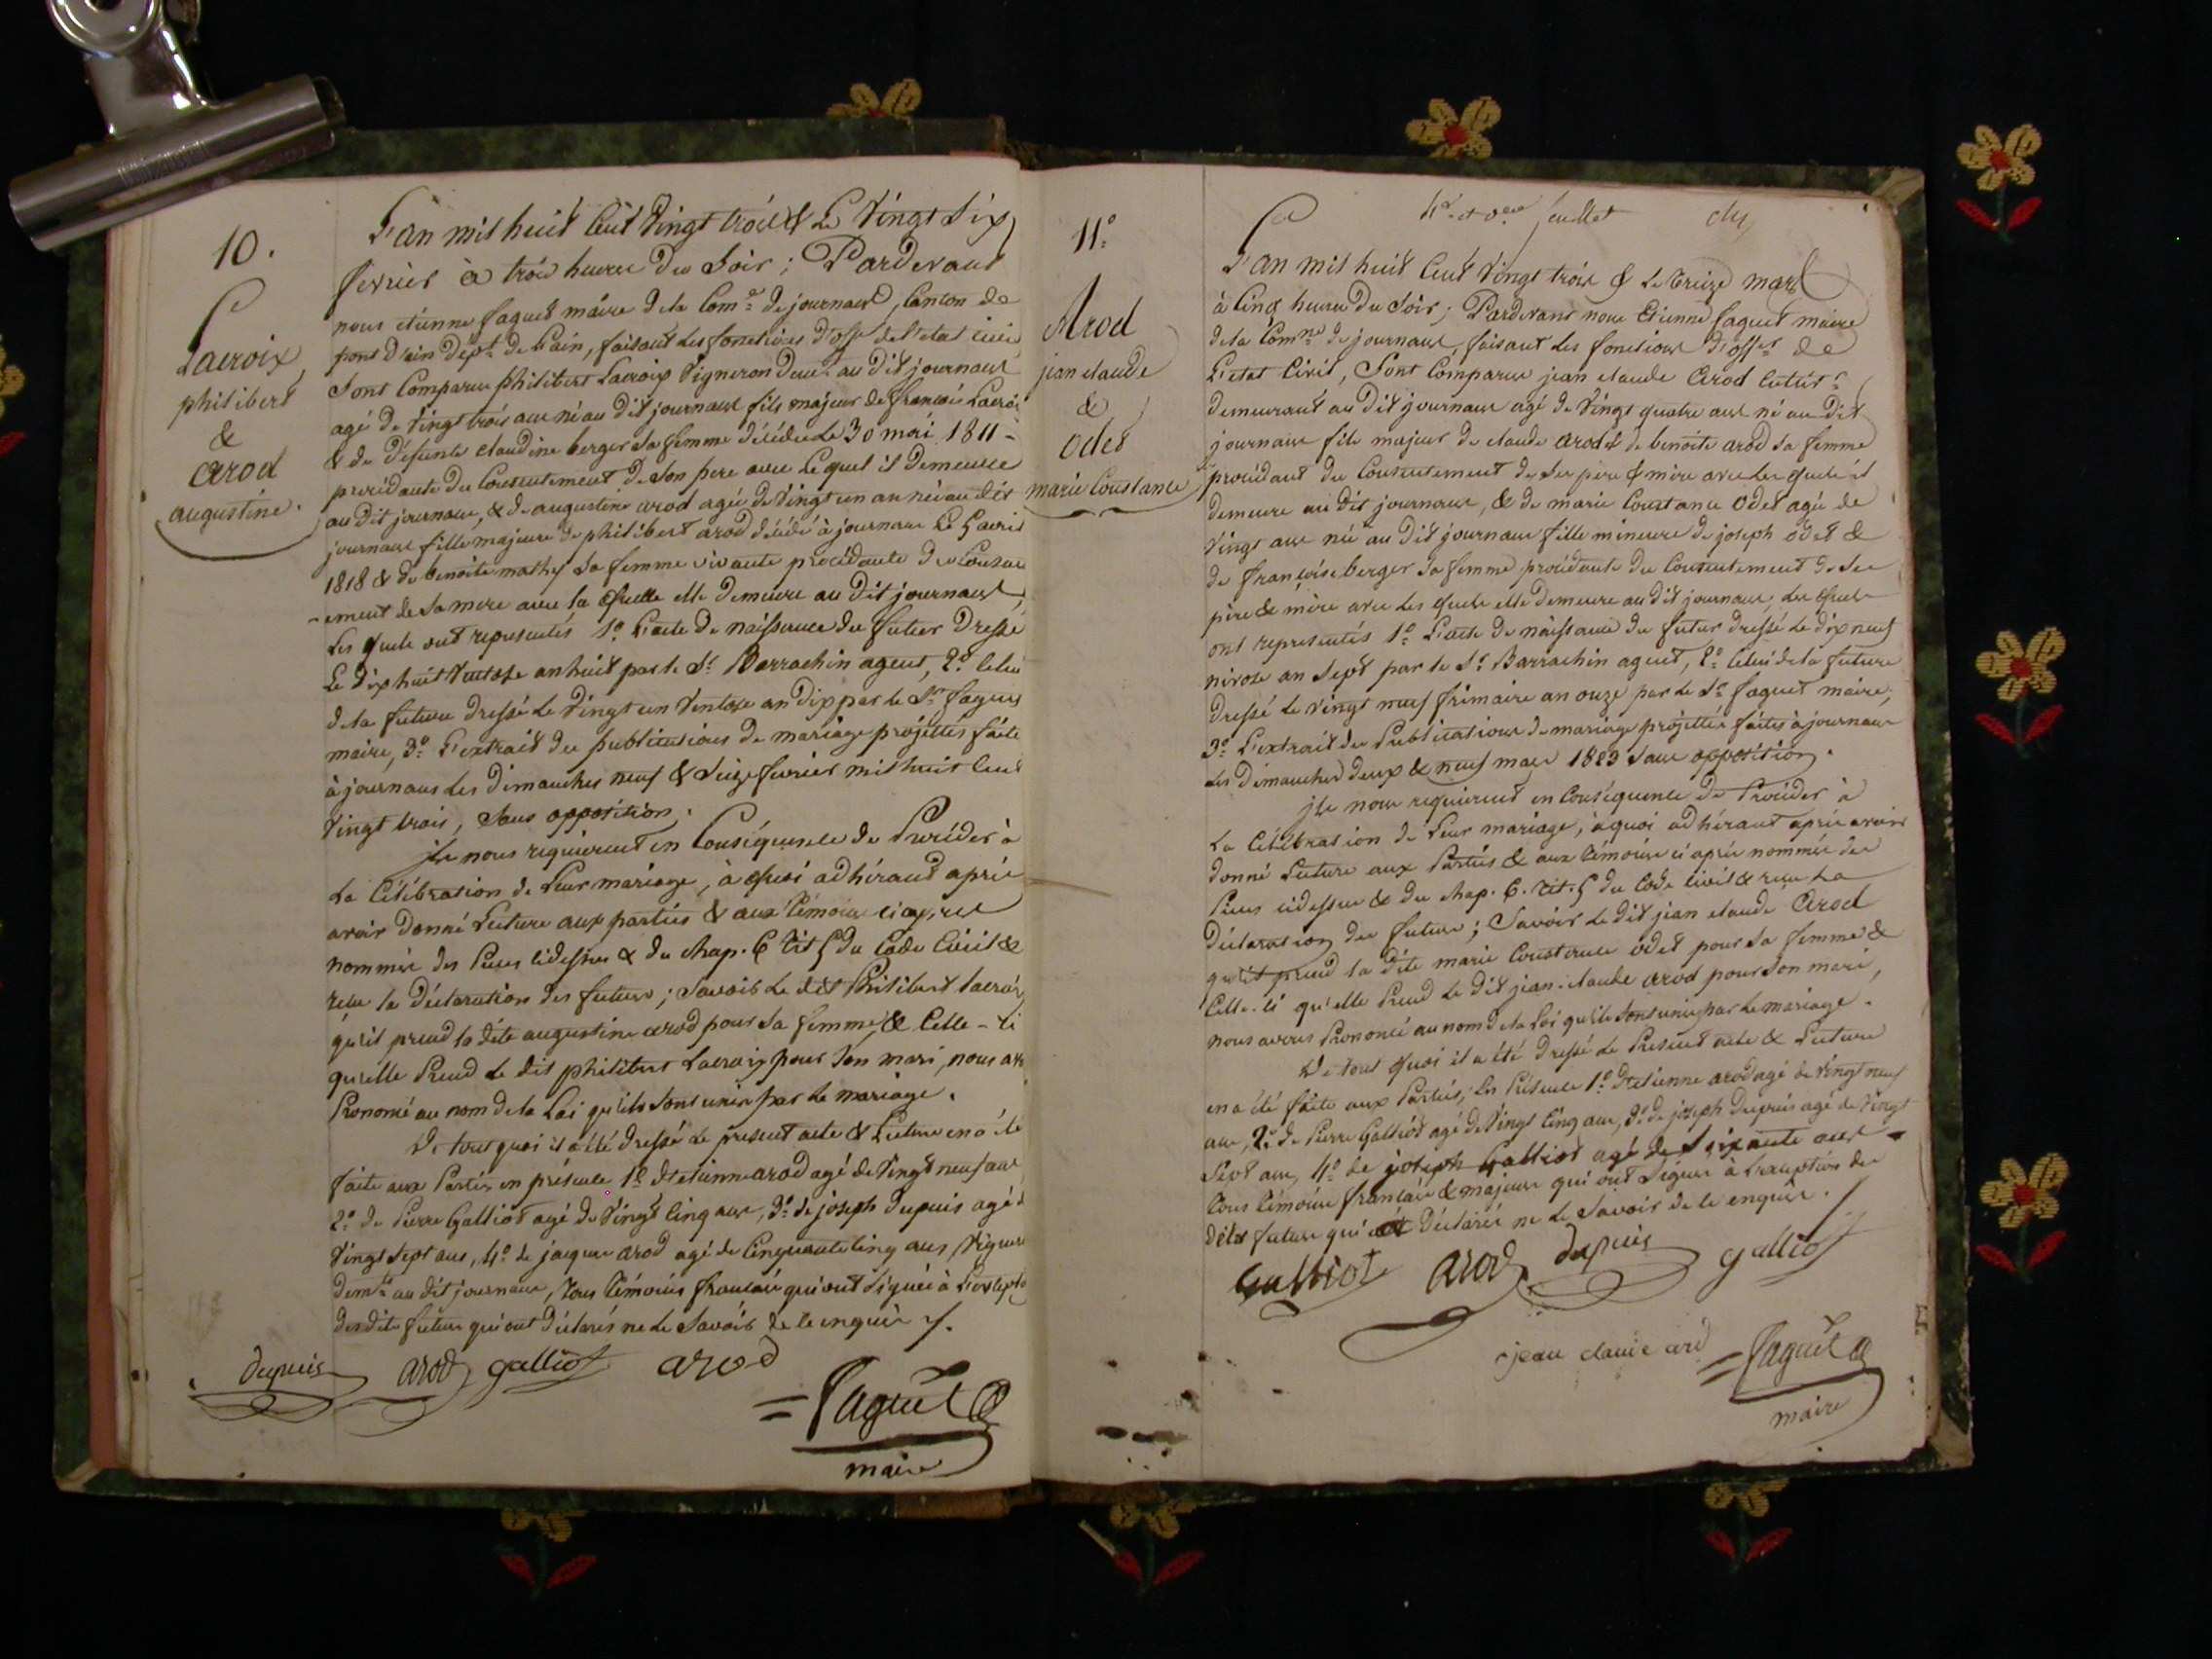 10.
Lacroix
philibert
&
arod
augustine.
L'an mil huit Cent Vingt trois & Le Vingt Six
fevrier à trois heures Du Soir ; Pardevant
nous etienne faguet maire dela Com.e de journans, Canton de
pont d'ain Dept. de L'ain, faisant Les fonctions d'off. de l'etat Civil
Sont Comparus philibert Lacroix Vigneron Deme.t au Dit journans
agé De Vingt trois ans né au Dit journans fils majeur de françois Lacroix
& de Défunte claudine berger Sa femme décédée Le 30 mai 1811 -
procédante du Consentement De Son pere avec Lequel il Demeure
au Dit journans, & De augustine arod agée de Vingt un an née au dit
journans fille majeure de philibert arod décédé à journans Le 5 avril
1818 & De benoite mathy Sa femme vivante procédante du Consen
-ement de Sa mere avec la quelle elle Demeure au Dit journans,
Les quels ont representés 1.o L'acte De naissance du futur Dressé
Le Dix huit Ventose an huit par le Sr. Barrachin agent, 2.o Celui
dela future dressé Le Vingt un Ventose an Dix par le Sr. faguet
maire, 3.o L'extrait des publications De mariage projettés faite
à journans Les Dimanches neuf & Seize fevrier mil huit Cent
Vingt trois, Sans opposition.
ils nous requierent en Conséquence de Procéder à
La Célébration de Leur mariage, à quoi adhérant après
avoir Donné Lecture aux parties & aux témoins ci après
nommés des Pieces cidessus & du chap. 6 tit 5 du Code Civil &
reçu la Déclaration des futurs ; Savoir Le dit Philibert Lacroix
qu'il prend la dite augustine arod pour Sa femme, & Celle - Ci
qu'elle Prend Le dit philibert Lacroix pour Son mari, nous avo
Prononcé au nom de la Loi qu'ils Sont unis par le mariage.
De tout quoi il a été dressé Le present acte & Lecture en a été
faite aux Parties en présence 1.o d'etienne arod agé de Vingt neuf ans
2.o de Pierre Galliot agé de Vingt Cinq ans, 3.o de joseph Dupuis agé d
Vingt Sept ans, 4.o de jacques arod agé de Cinquante Cinq ans, Vigner
Dem.ts au dit journans, tous témoins français qui ont Signés à L'except.o
Des dits futurs qui ont Déclarés ne Le Savoir de le enquis ./.
Dupuis arod galliot arod
= faguet
maire
11.o
Arod
jean claude
&
Odet
marie Constance
feuillet
L'an mil huit Cent Vingt trois & Le treize mars
à Cinq heures Du Soir ; Pardevant nous Etienne faguet maire
dela Com.ne de journans, faisant Les fonctions d'offer. de
L'etat Civil, Sont Comparus jean claude Arod Cultiv.r
demeurant au Dit journans agé de Vingt quatre ans né au Dit
journans fils majeur de claude arod & de benoite arod Sa femme
procédant du Consentement de Ses père & mère avec Les quels il
demeure au dit journans, & de marie Constance Odet agée de
Vingt ans née au Dit journans fille mineure de joseph odet &
de françoise berger Sa femme procédante du Consentement de Ses
père & mère avec Les quels elle Demeure au dit journans, Les quels
ont representés 1.o L'acte De naissance du futur dressé Le dix neuf
nivose an Sept par le Sr. Barrachin agent, 2.o Celui dela future
dressé Le Vingt neuf frimaire an onze par Le Sr. faguet maire,
3.o L'extrait des Publications de mariage projettés faites à journans
Les Dimanches deux & neuf mars 1823 Sans opposition.
ils nous requierent en Conséquence De Procéder à
La Célébration de Leur mariage, à quoi adhérant après avoir
donné Lecture aux Parties & aux témoins ci après nommés des
Pieces cidessus & du chap. 6. tit. 5 du Code Civil & reçu La
Déclaration des futurs ; Savoir Le dit jean claude Arod
qu'il prend la dite marie Constance odet pour Sa femme &
Celle-Ci qu'elle Prend Le dit jean-claude arod pour Son mari,
nous avons Prononcé au nom de la Loi qu'ils Sont unis par Le mariage.
De tout quoi il a été dressé Le Present acte & Lecture
en a été faite aux Parties, En Présence 1.o d'etienne arod agé de Vingt neuf
ans, 2.o de Pierre Galliot agé de Vingt Cinq ans, 3.o de joseph Dupuis agé de Vingt
Sept ans, 4.o de joseph Galliot agé de Soixante ans
tous témoins français & majeurs qui ont Signés à L'exception de
dite future qui a Déclarée ne Le Savoir de le enquise ./
Galliot arod dupuis galliot
jean claude arod = faguet
maire